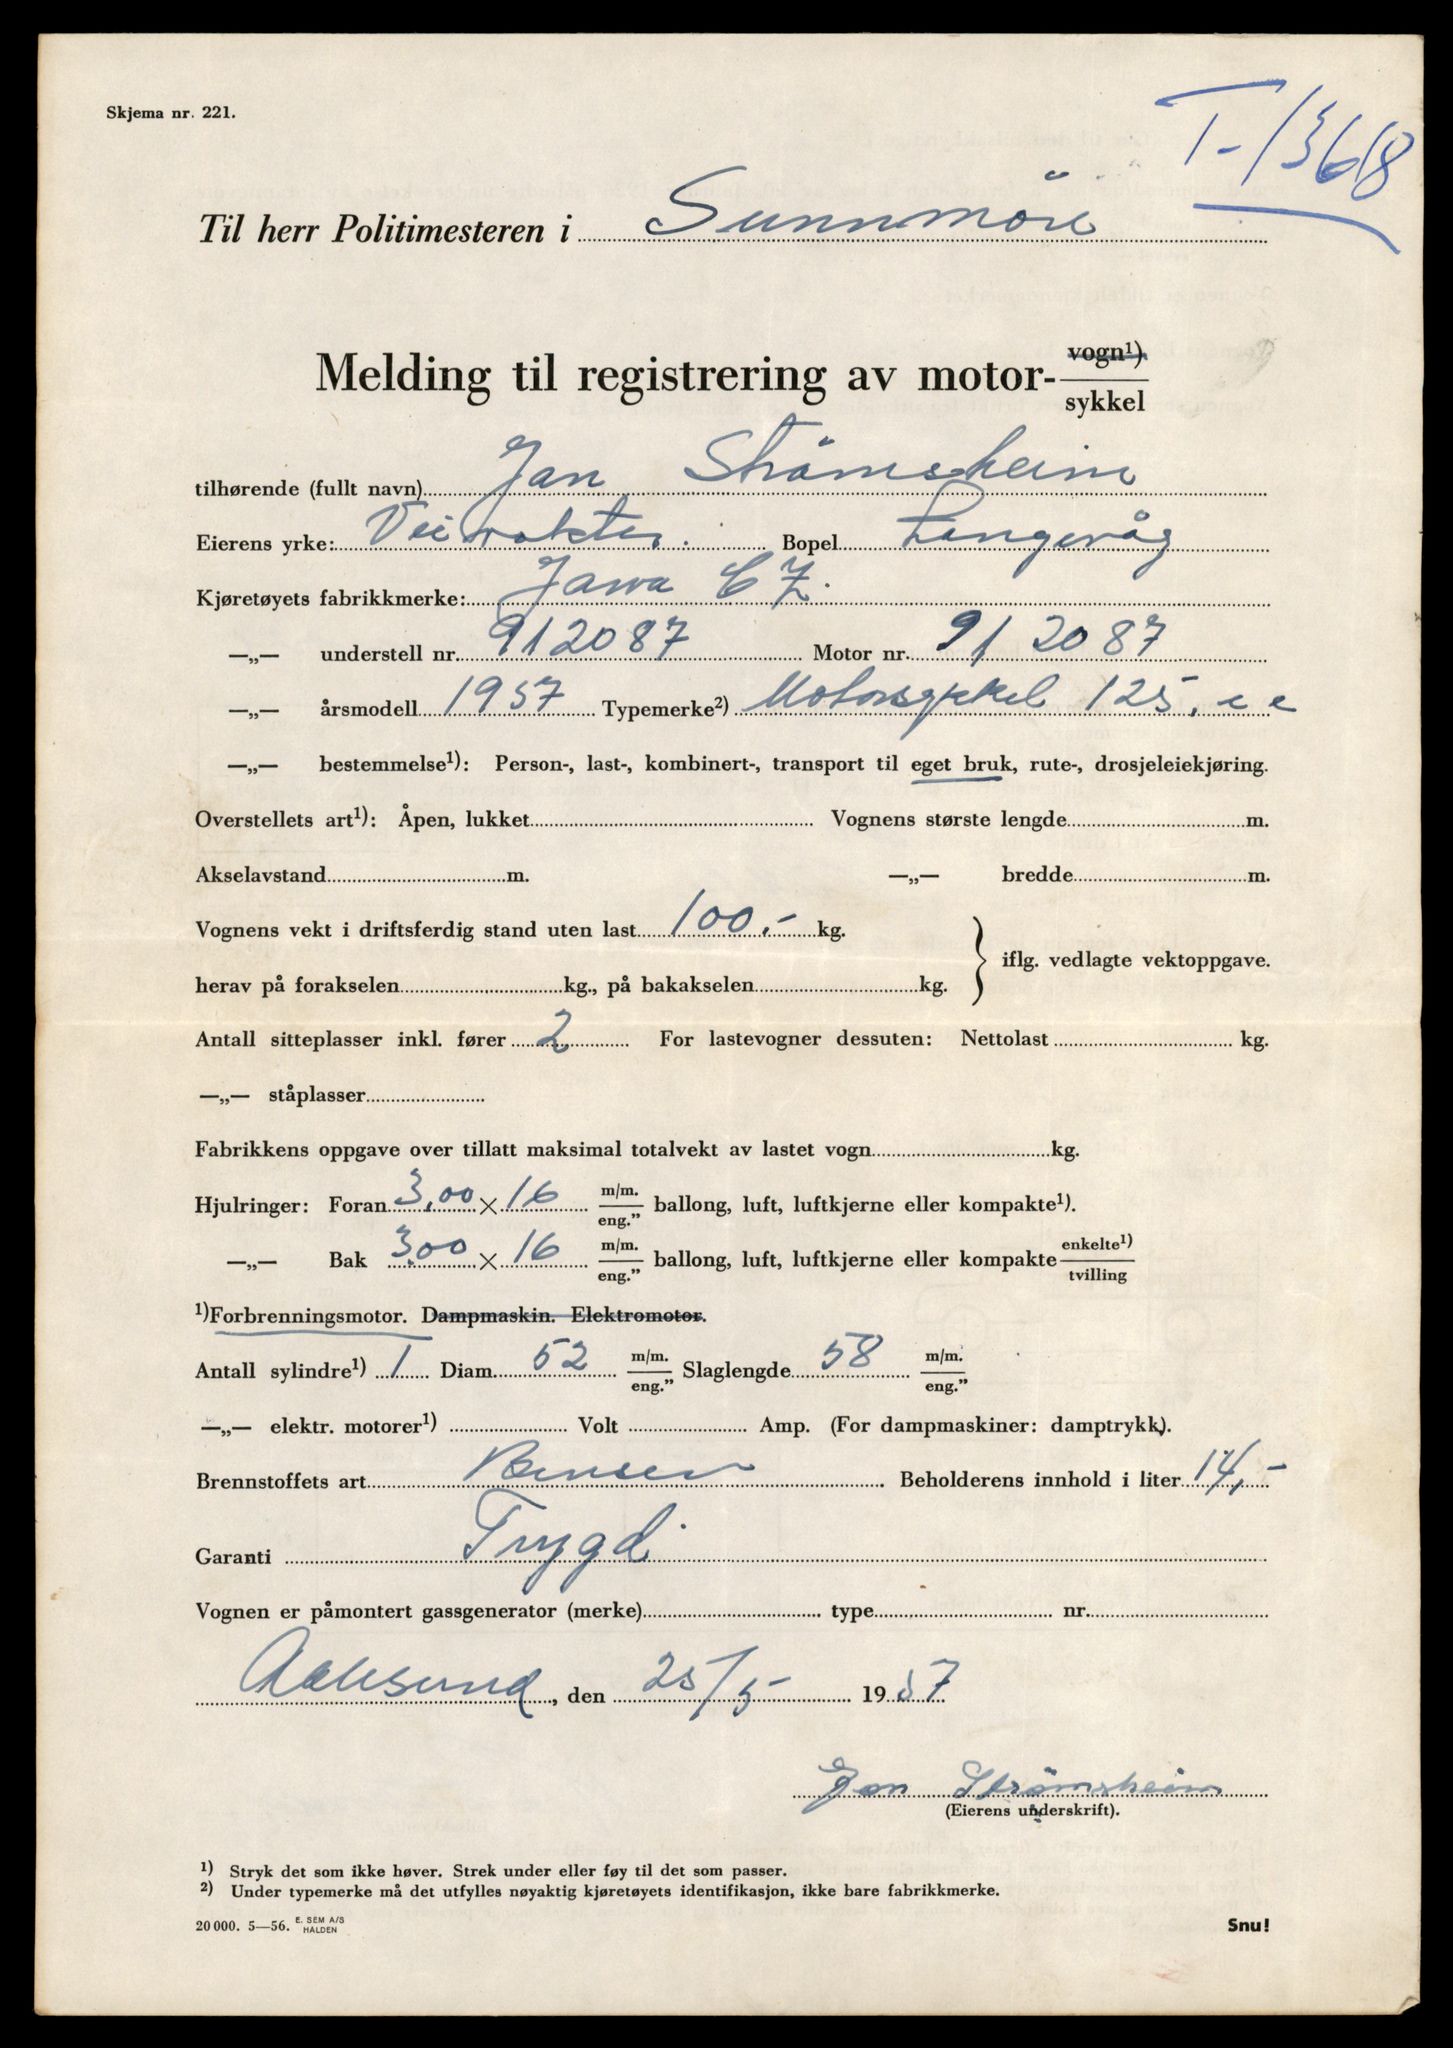 Skjema nr. 221.
T-1368
Til herr Politimesteren i Sunnmöre
Melding til registrering av motor- vogn¹) sykkel
tilhørende (fullt navn) Jan Strömsheim
Eierens yrke: Veivokter. Bopel Langevåg
Kjøretøyets fabrikkmerke: Jawa C Z.
—„— understell nr. 912087 Motor nr. 912087
—„— årsmodell 1957 Typemerke²) Motorsykkel 125. c c
—„— bestemmelse¹): Person-, last-, kombinert-, transport til eget bruk, rute-, drosjeleiekjøring.
Overstellets art¹): Åpen, lukket Vognens største lengde m.
Akselavstand m. —„— bredde m.
Vognens vekt i driftsferdig stand uten last 100.- kg.
iflg. vedlagte vektoppgave.
herav på forakselen kg., på bakakselen kg.
Antall sitteplasser inkl. fører 2 For lastevogner dessuten: Nettolast kg.
—„— ståplasser
Fabrikkens oppgave over tillatt maksimal totalvekt av lastet vogn kg.
Hjulringer: Foran 3,00 × 16 m/m. eng.” ballong, luft, luftkjerne eller kompakte¹).
—„— Bak 3.00 × 16 m/m. eng.” ballong, luft, luftkjerne eller kompakte enkelte¹) tvilling
¹)Forbrenningsmotor. Dampmaskin. Elektromotor.
Antall sylindre¹) 1 Diam. 52 m/m. eng.” Slaglengde 58 m/m. eng.”
—„— elektr. motorer¹) Volt Amp. (For dampmaskiner: damptrykk).
Brennstoffets art Bensin Beholderens innhold i liter 14,-
Garanti Trygd
Vognen er påmontert gassgenerator (merke) type nr.
Aalesund, den 25/5- 1957
Jan Strömsheim
(Eierens underskrift).
¹) Stryk det som ikke høver. Strek under eller føy til det som passer.
²) Under typemerke må det utfylles nøyaktig kjøretøyets identifikasjon, ikke bare fabrikkmerke.
20 000. 5—56. E. SEM A/S HALDEN
Snu!